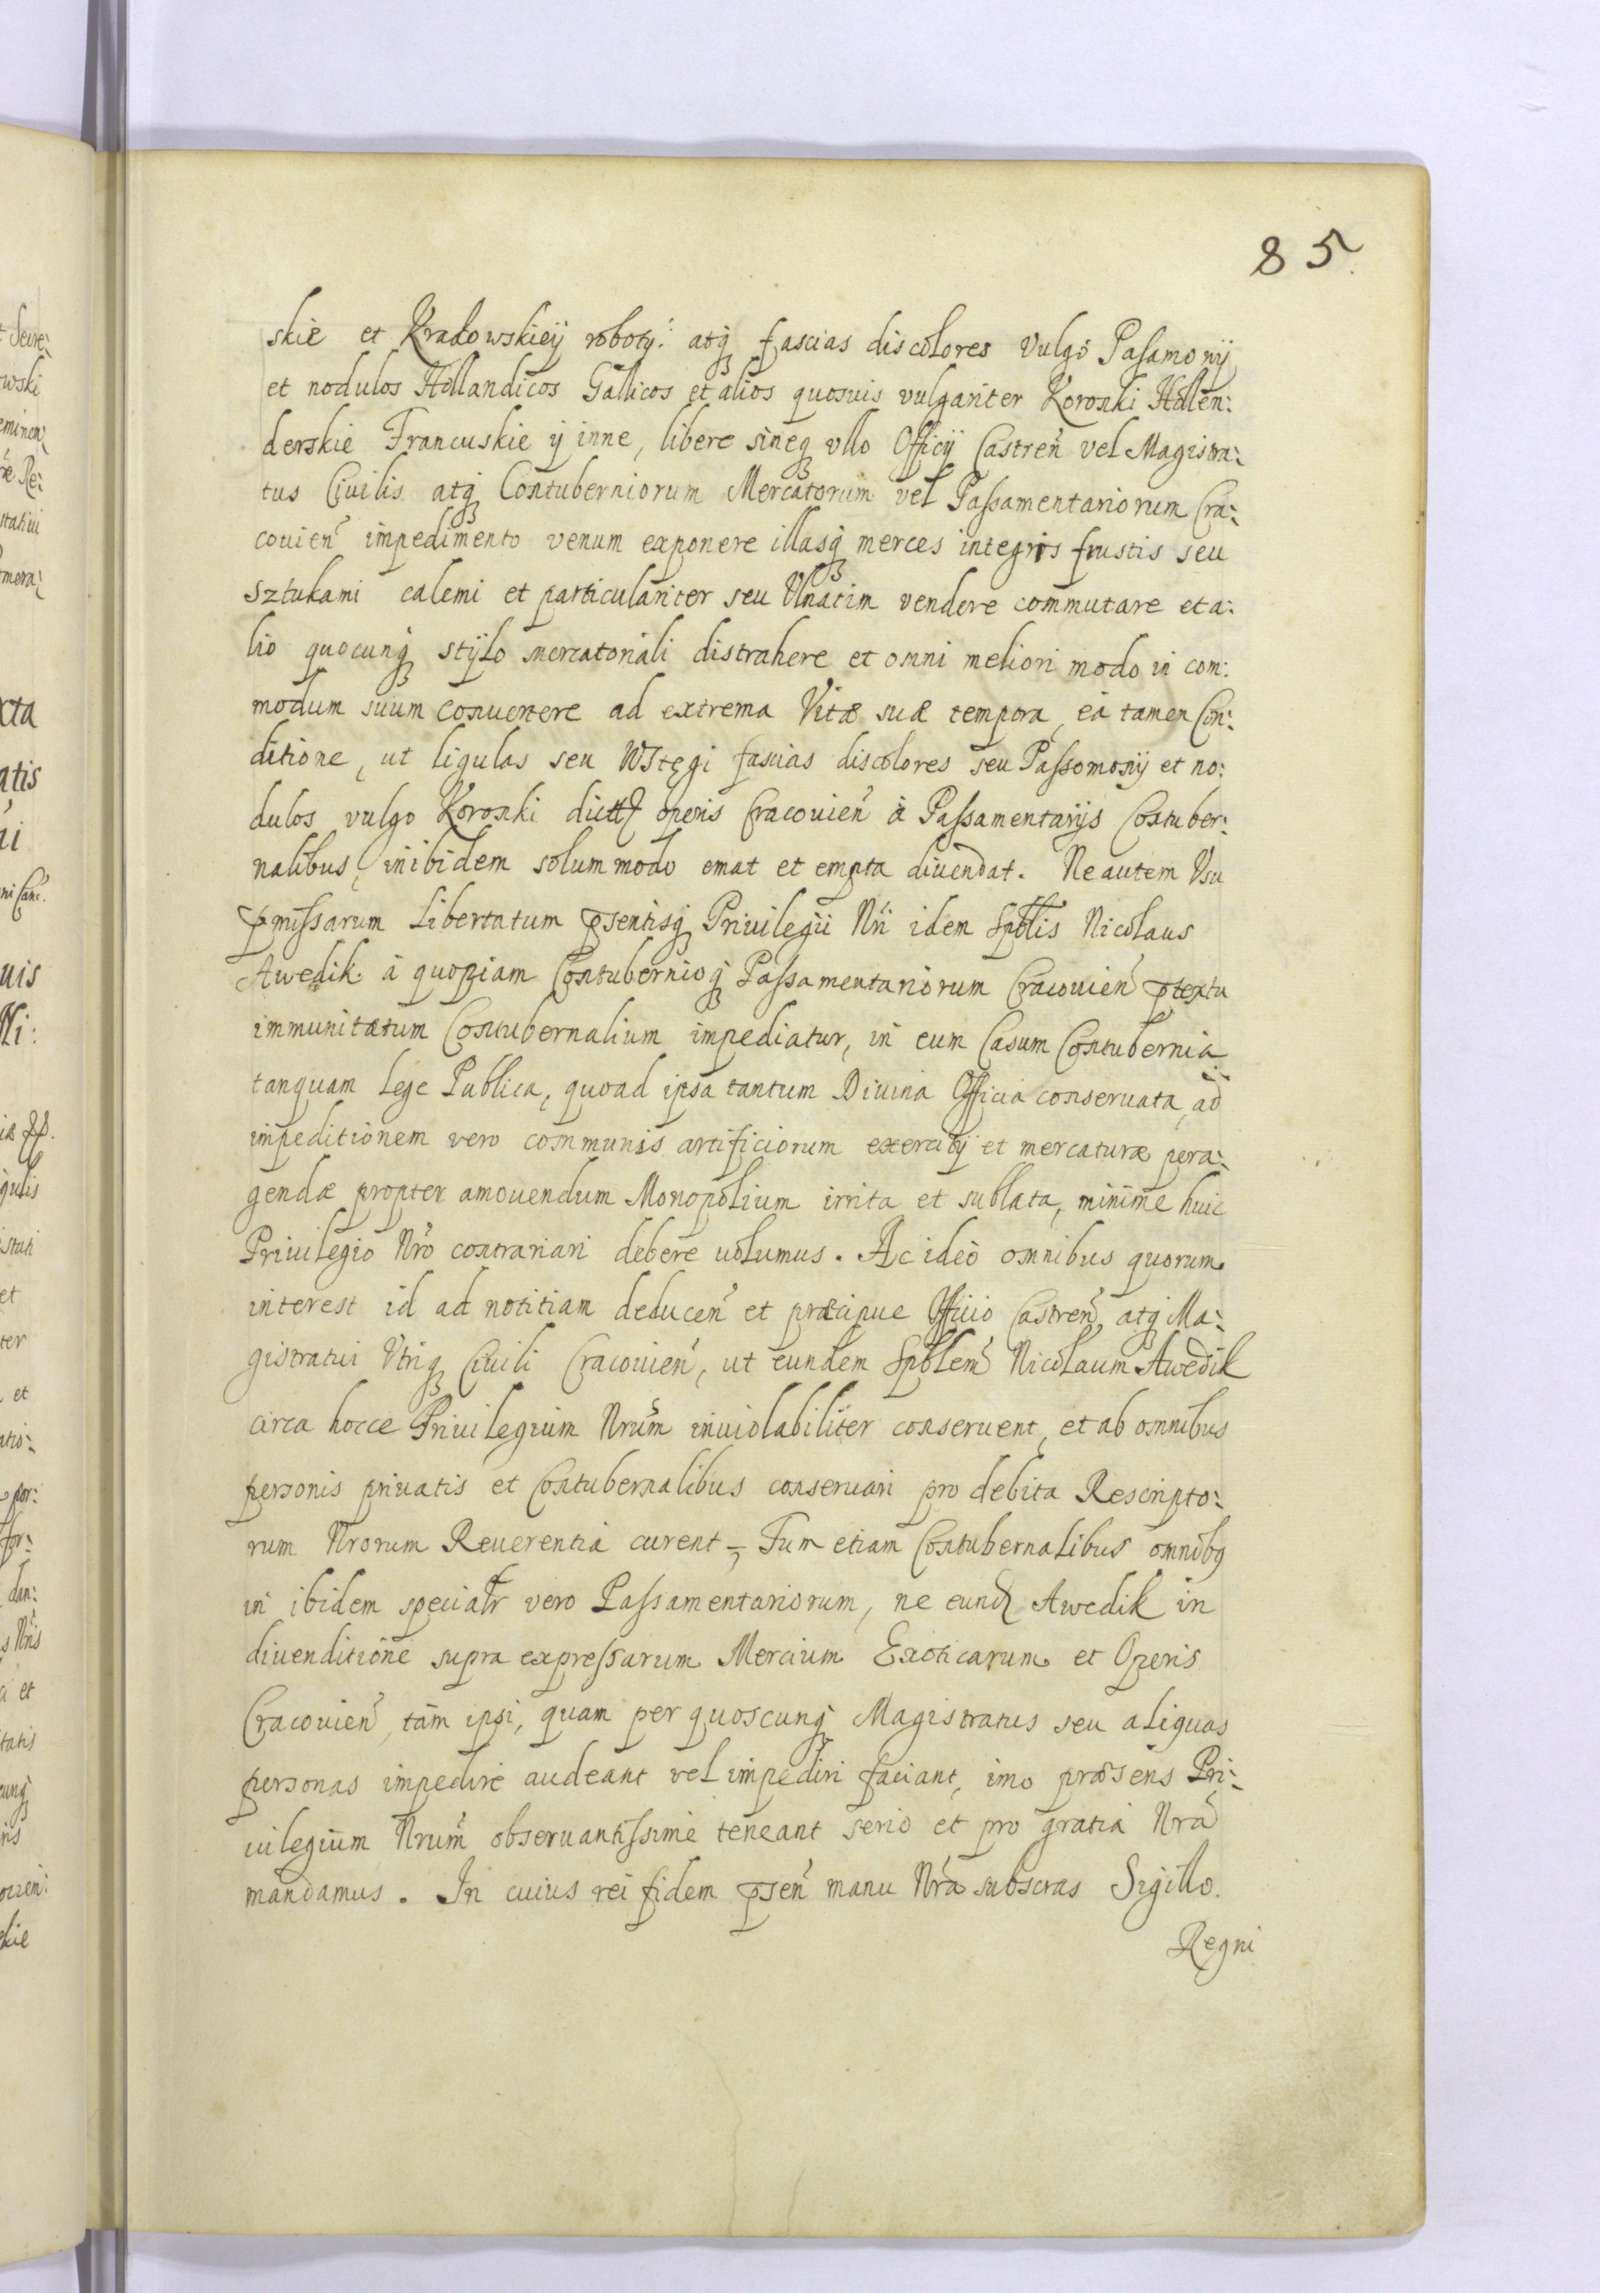 85.
skie et Krakowskieÿ robotÿ: atq fascias discolores vulgò Pasamonÿ
et nodulos Hollandicos Gallicos et alios quosuis vulgariter Koronki Hollen:
derskie Francuskie ÿ inne, libere sineq vllo Officÿ Castren̄ vel Magistra:
tus Civilis atq Contuberniorum Mercatorum vel Passamentariorum Cra:
couien̄ impedimento venum exponere illasq merces integris frustis seu
Sztukami całemi et particulariter seu Vlnatim vendere commutare et a:
lio quocunq stÿlo mercatoriali distrahere et omni meliori modo in com:
modum suum conuertere ad extrema Vitæ suæ tempora, eà tamen Con:
ditione, ut ligulas seu Wstęgi fascias discolores seu Passomonÿ et no:
dulos vulgo Koronki dictt operis Cracouien̄ à Passamentarÿs Contuber:
nalibus, inibidem solummodo emat et empta diuendat. Ne autem Vsu
pmissarum Libertatum psentisq Priuilegii Nri idem Spblis Nicolaus
Awedik à quopiam Contubernioq Passamentariorum Cracouien̄ ptextu
immunitatum Contubernalium impediatur, in eum Casum Contubernia
tanquam Lege Publica, quoad ipsa tantum Diuina Officia conseruata, ad
impeditionem vero communis artificiorum exercitÿ et mercaturæ pera:
gendæ propter amouendum Monopolium irrita et sublata, minime huic
Priuilegio Nrō contrariari debere uolumus. Ac ideò omnibus quorum
interest id ad notitiam deducen̄ et præcipue Officio Castren̄, atq Ma:
gistratui Vtriq Ciuili Cracouien̄, ut eundem Spblem̄ Nicolaum Awedik
circa hocce Priuilegium Nrūm inuiolabiliter conseruent, et ab omnibus
personis priuatis et Contubernalibus conseruari pro debita Rescripto:
rum Nrorum Reuerentià curent, Tum etiam Contubernalibus omnibq
in ibidem speciatr vero Passamentariorum, ne eund Awedik in
diuenditione supra expressarum Mercium Exoticarum et Operis
Cracouien̄, tàm ipsi, quam per quoscunq Magistratus seu aliquas
personas impedire audeant vel impediri faciant, imo præsens Pri:
uilegium Nrum̄ obseruantissime teneant serio et pro gratia Nrā
mandamus. In cuius rei fidem psen̄ manu Nrā subscras Sigillo
Regni